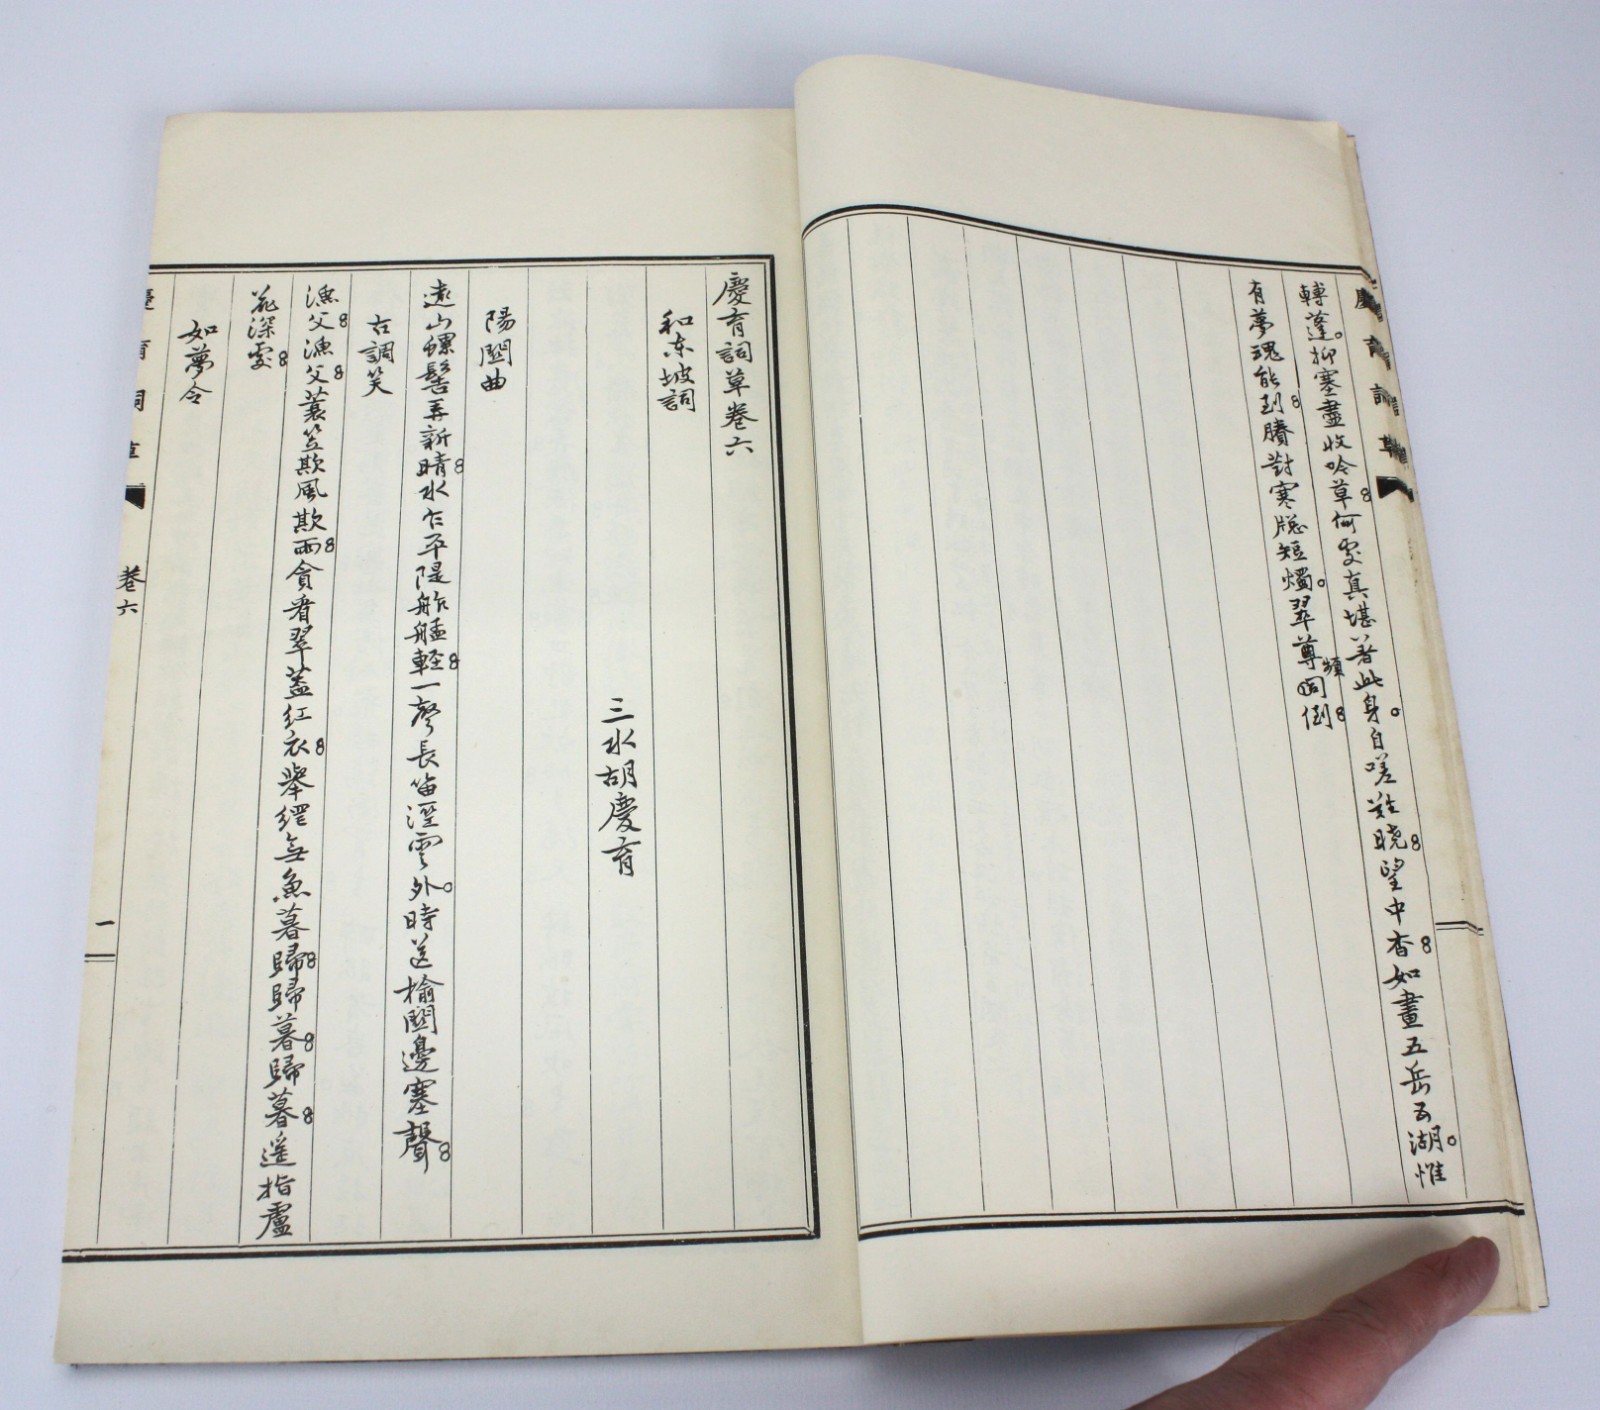 轉蓬。抑塞盡收吟草何處真堪著此身。自嗟難曉望中杳如畫五岳五湖。惟
有夢魂能到賸對寒牕短燭。翠尊頻倒
慶育詞草
慶育詞草卷六
和東坡詞
三水胡慶育
陽關曲
遠山螺髻弄新晴水乍平隄舴艋輕一聲長笛溼雲外。時送榆關邊塞聲
古調笑
漁父漁父蓑笠欺風欺雨貪看翠蓋紅衣舉網無魚暮歸歸暮歸暮遥指蘆
花深處
如夢令
慶育詞草 卷六 一